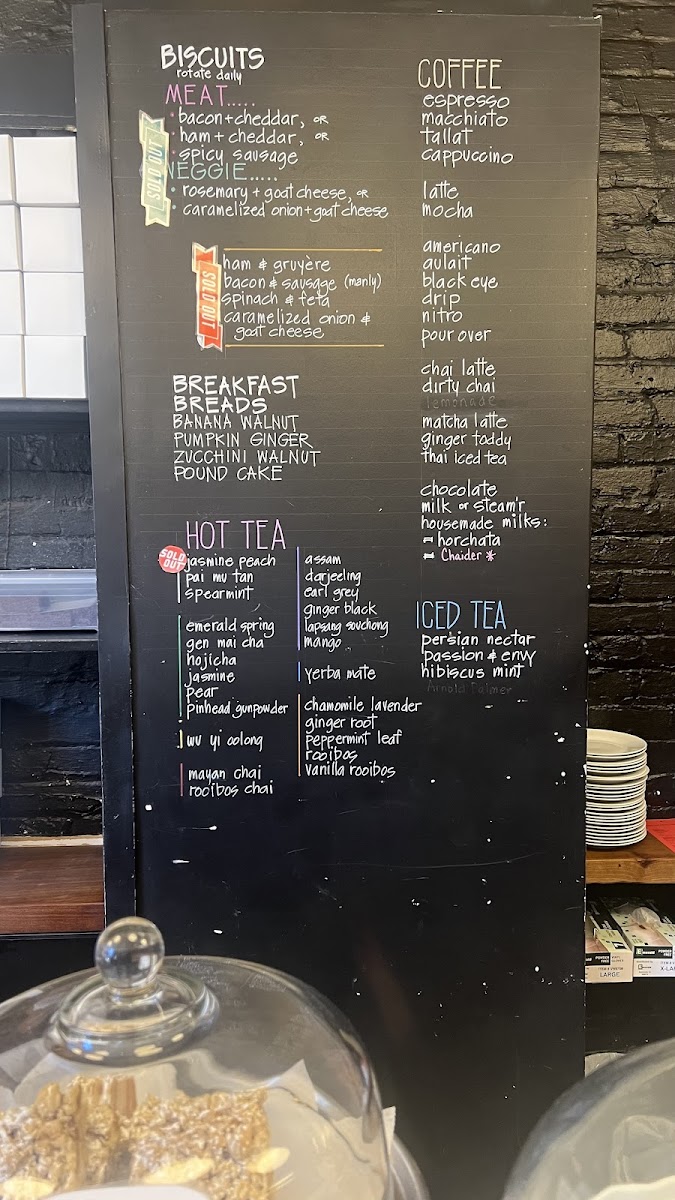 BISCUITS
rotate daily
MEAT.....
bacon+cheddar, OR
ham + cheddar, OR
spicy sausage
SOLD OUT
VEGGIE.....
rosemary + goat cheese, OR
caramelized onion + goat cheese
SOLD OUT
ham & gruyère
bacon & sausage (manly)
spinach & feta
caramelized onion &
goat cheese
BREAKFAST
BREADS
BANANA WALNUT
PUMPKIN GINGER
ZUCCHINI WALNUT
POUND CAKE
HOT TEA
SOLD
OUT
jasmine peach
pai mu tan
spearmint
emerald spring
gen mai cha
hojicha
jasmine
pear
pinhead gunpowder
wu yi oolong
mayan chai
rooibos chai
assam
darjeeling
earl grey
ginger black
lapsang souchong
mango
yerba mate
chamomile lavender
ginger root
peppermint leaf
rooibos
vanilla rooibos
COFFEE
espresso
macchiato
tallat
cappuccino
latte
mocha
americano
aulait
black eye
drip
nitro
pour over
chai latte
dirty chai
lemonade
matcha latte
ginger toddy
thai iced tea
chocolate
milk or steam'r
housemade milks:
horchata
Chaider *
ICED TEA
persian nectar
passion & envy
hibiscus mint
Arnold Palmer
POWDER
FREE
LARGE
POWDER
FREE